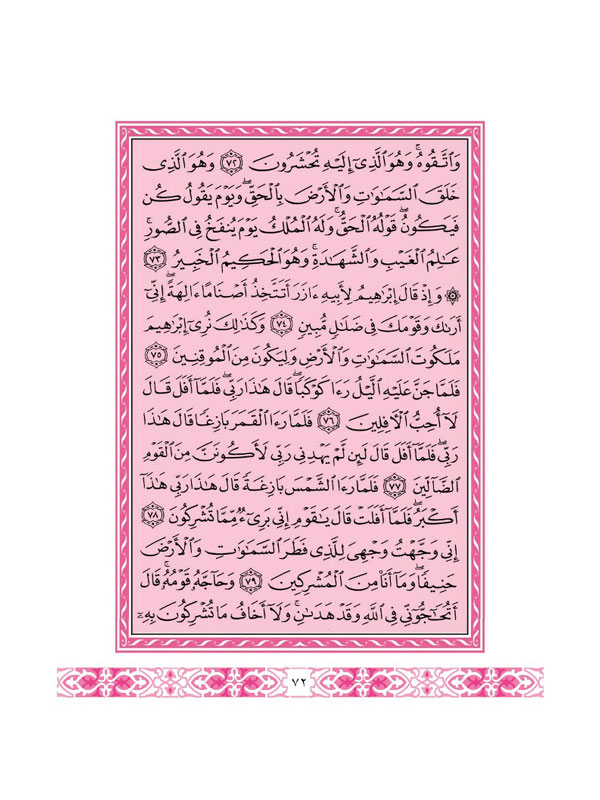 وَٱتَّقُوهُۚ وَهُوَ ٱلَّذِىٓ إِلَيْهِ تُحْشَرُونَ ٧٢ وَهُوَ ٱلَّذِى
خَلَقَ ٱلسَّمَٰوَٰتِ وَٱلْأَرْضَ بِٱلْحَقِّۖ وَيَوْمَ يَقُولُ كُن
فَيَكُونُۖ قَوْلُهُ ٱلْحَقُّۚ وَلَهُ ٱلْمُلْكُ يَوْمَ يُنفَخُ فِى ٱلصُّورِۚ
عَٰلِمُ ٱلْغَيْبِ وَٱلشَّهَٰدَةِۚ وَهُوَ ٱلْحَكِيمُ ٱلْخَبِيرُ ٧٣
۞ وَإِذْ قَالَ إِبْرَٰهِيمُ لِأَبِيهِ ءَازَرَ أَتَتَّخِذُ أَصْنَامًا ءَالِهَةًۖ إِنِّىٓ
أَرَىٰكَ وَقَوْمَكَ فِى ضَلَٰلٍ مُّبِينٍ ٧٤ وَكَذَٰلِكَ نُرِىٓ إِبْرَٰهِيمَ
مَلَكُوتَ ٱلسَّمَٰوَٰتِ وَٱلْأَرْضِ وَلِيَكُونَ مِنَ ٱلْمُوقِنِينَ ٧٥
فَلَمَّا جَنَّ عَلَيْهِ ٱلَّيْلُ رَءَا كَوْكَبًاۖ قَالَ هَٰذَا رَبِّىۖ فَلَمَّآ أَفَلَ قَالَ
لَآ أُحِبُّ ٱلْءَافِلِينَ ٧٦ فَلَمَّا رَءَا ٱلْقَمَرَ بَازِغًا قَالَ هَٰذَا
رَبِّىۖ فَلَمَّآ أَفَلَ قَالَ لَئِن لَّمْ يَهْدِنِى رَبِّى لَأَكُونَنَّ مِنَ ٱلْقَوْمِ
ٱلضَّآلِّينَ ٧٧ فَلَمَّا رَءَا ٱلشَّمْسَ بَازِغَةً قَالَ هَٰذَا رَبِّى هَٰذَآ
أَكْبَرُۖ فَلَمَّآ أَفَلَتْ قَالَ يَٰقَوْمِ إِنِّى بَرِىٓءٌ مِّمَّا تُشْرِكُونَ ٧٨
إِنِّى وَجَّهْتُ وَجْهِىَ لِلَّذِى فَطَرَ ٱلسَّمَٰوَٰتِ وَٱلْأَرْضَ
حَنِيفًاۖ وَمَآ أَنَا۠ مِنَ ٱلْمُشْرِكِينَ ٧٩ وَحَآجَّهُۥ قَوْمُهُۥۚ قَالَ
أَتُحَٰٓجُّوٓنِّى فِى ٱللَّهِ وَقَدْ هَدَىٰنِۚ وَلَآ أَخَافُ مَا تُشْرِكُونَ بِهِۦٓ
٧٢